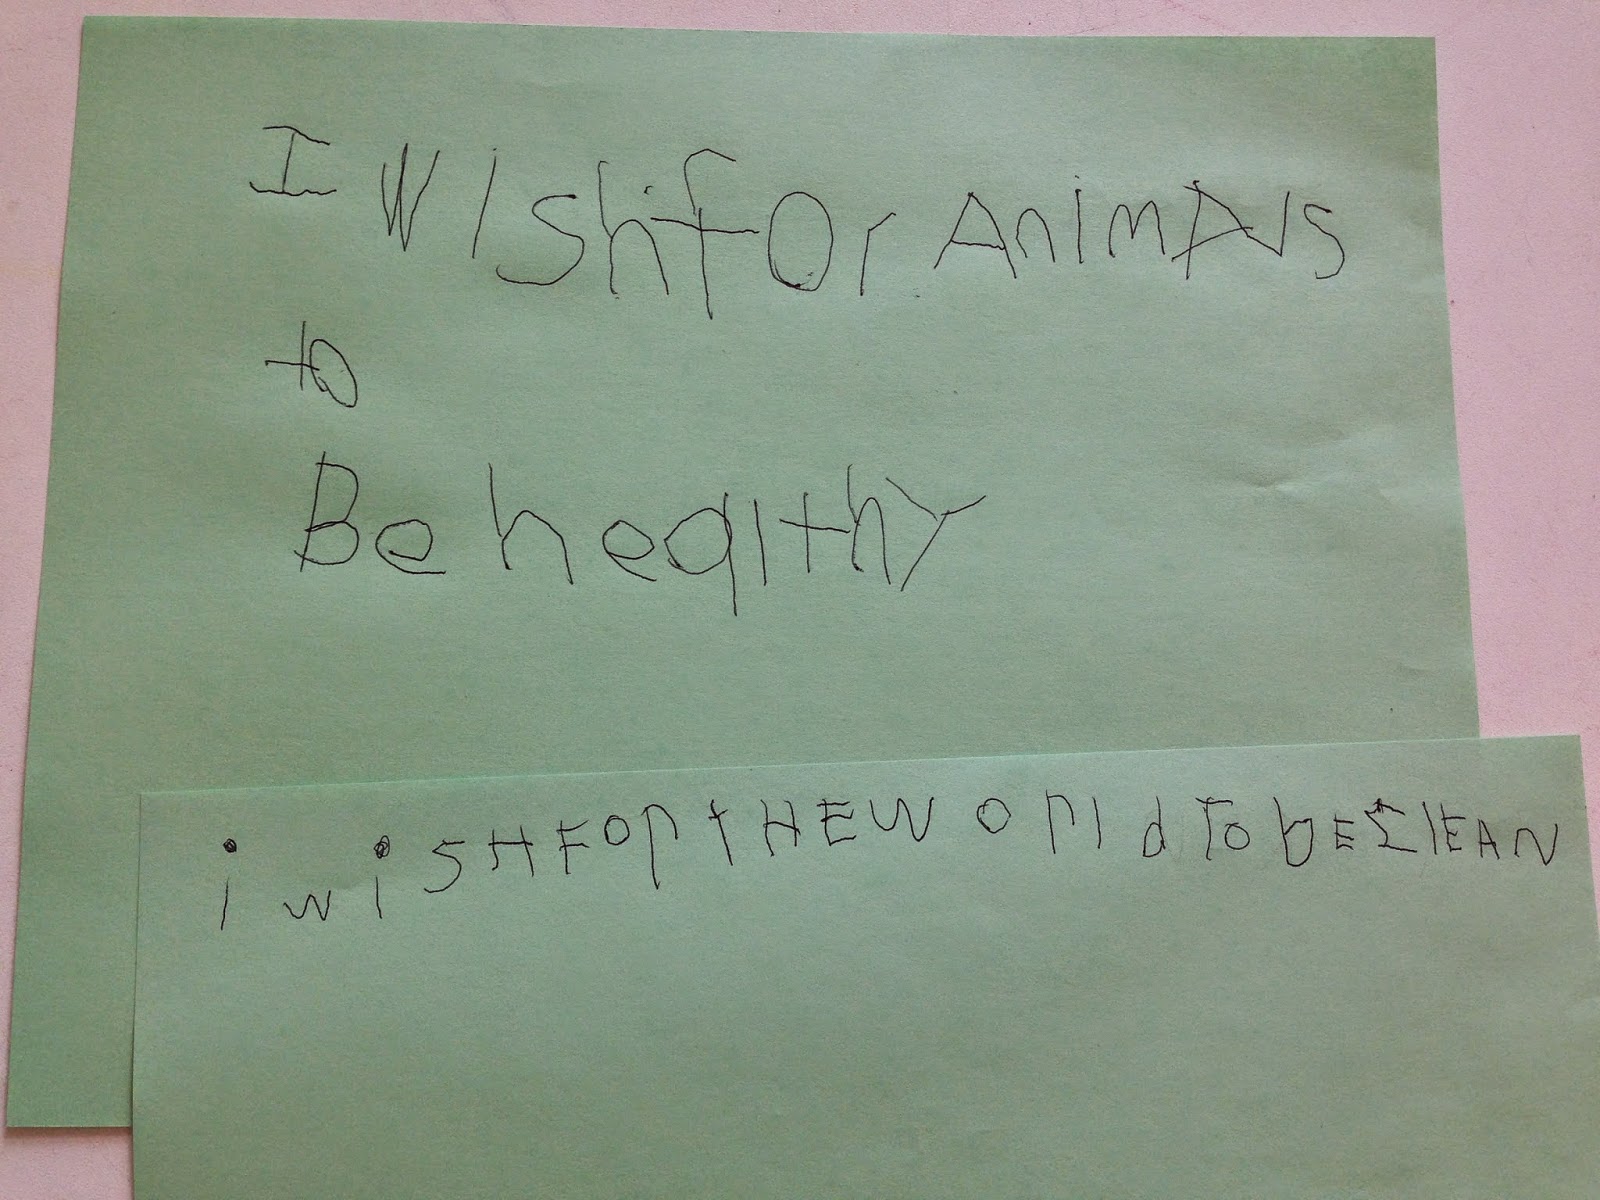 I wish for AnimAls
to
Be healthy
i wisH For tHE world To bE ClEAN